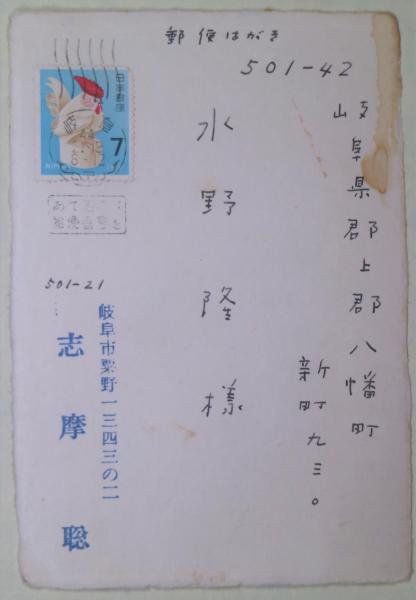 郵便はがき
501-42
岐阜県郡上郡八幡町
新町九三〇
水野隆様
日本郵便
7
NIPPON
岐阜
501-21
岐阜市粟野一三四三の二
志摩聡